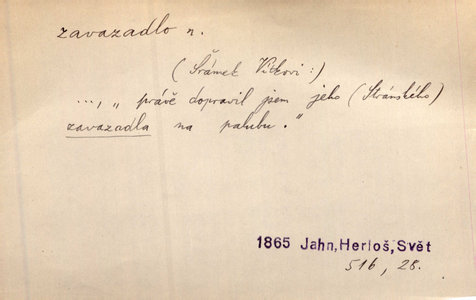 zavazadlo n.
(Šrámek Vickovi:)
..., „ právě dopravil jsem jeho (Stránského)
zavazadla na palubu."
1865 Jahn, Herloš, Svět
516, 28.